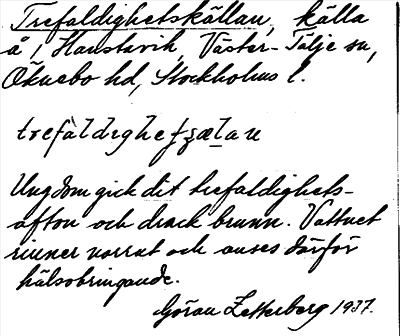 Trefaldighetskällan, källa
å i Hanstavik, Väster-Tälje sn,
Öknebo hd, Stockholms l.
Ungdom gick dit trefaldighets-
afton och drack brunn. Vattnet
rinner norrut och anses därför
hälsobringande.
Göran Zetterberg 1937.